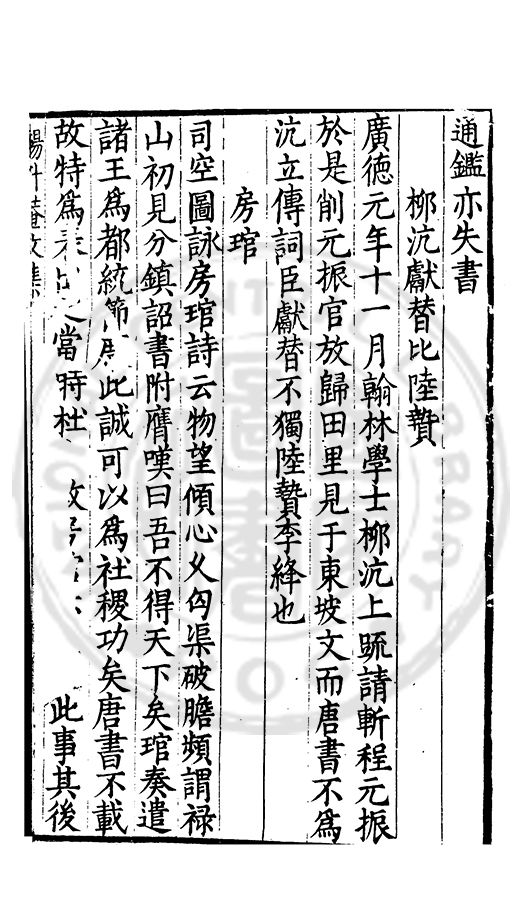 通鑑亦失書
柳沆獻替比陸贄
廣德元年十一月翰林學士柳沆上䟽請斬程元振
於是削元振官放歸田里見于東坡文而唐書不爲
沆立傳詞臣獻替不獨陸贄李絳也
房琯
司空圖詠房琯詩云物望傾心乂匈渠破膽頻謂祿
山初見分鎮詔書附膺嘆曰吾不得天下矣琯奏遣
諸王爲都統節此誠可以爲社稷功矣唐書不載
故特爲當時杜此事其後